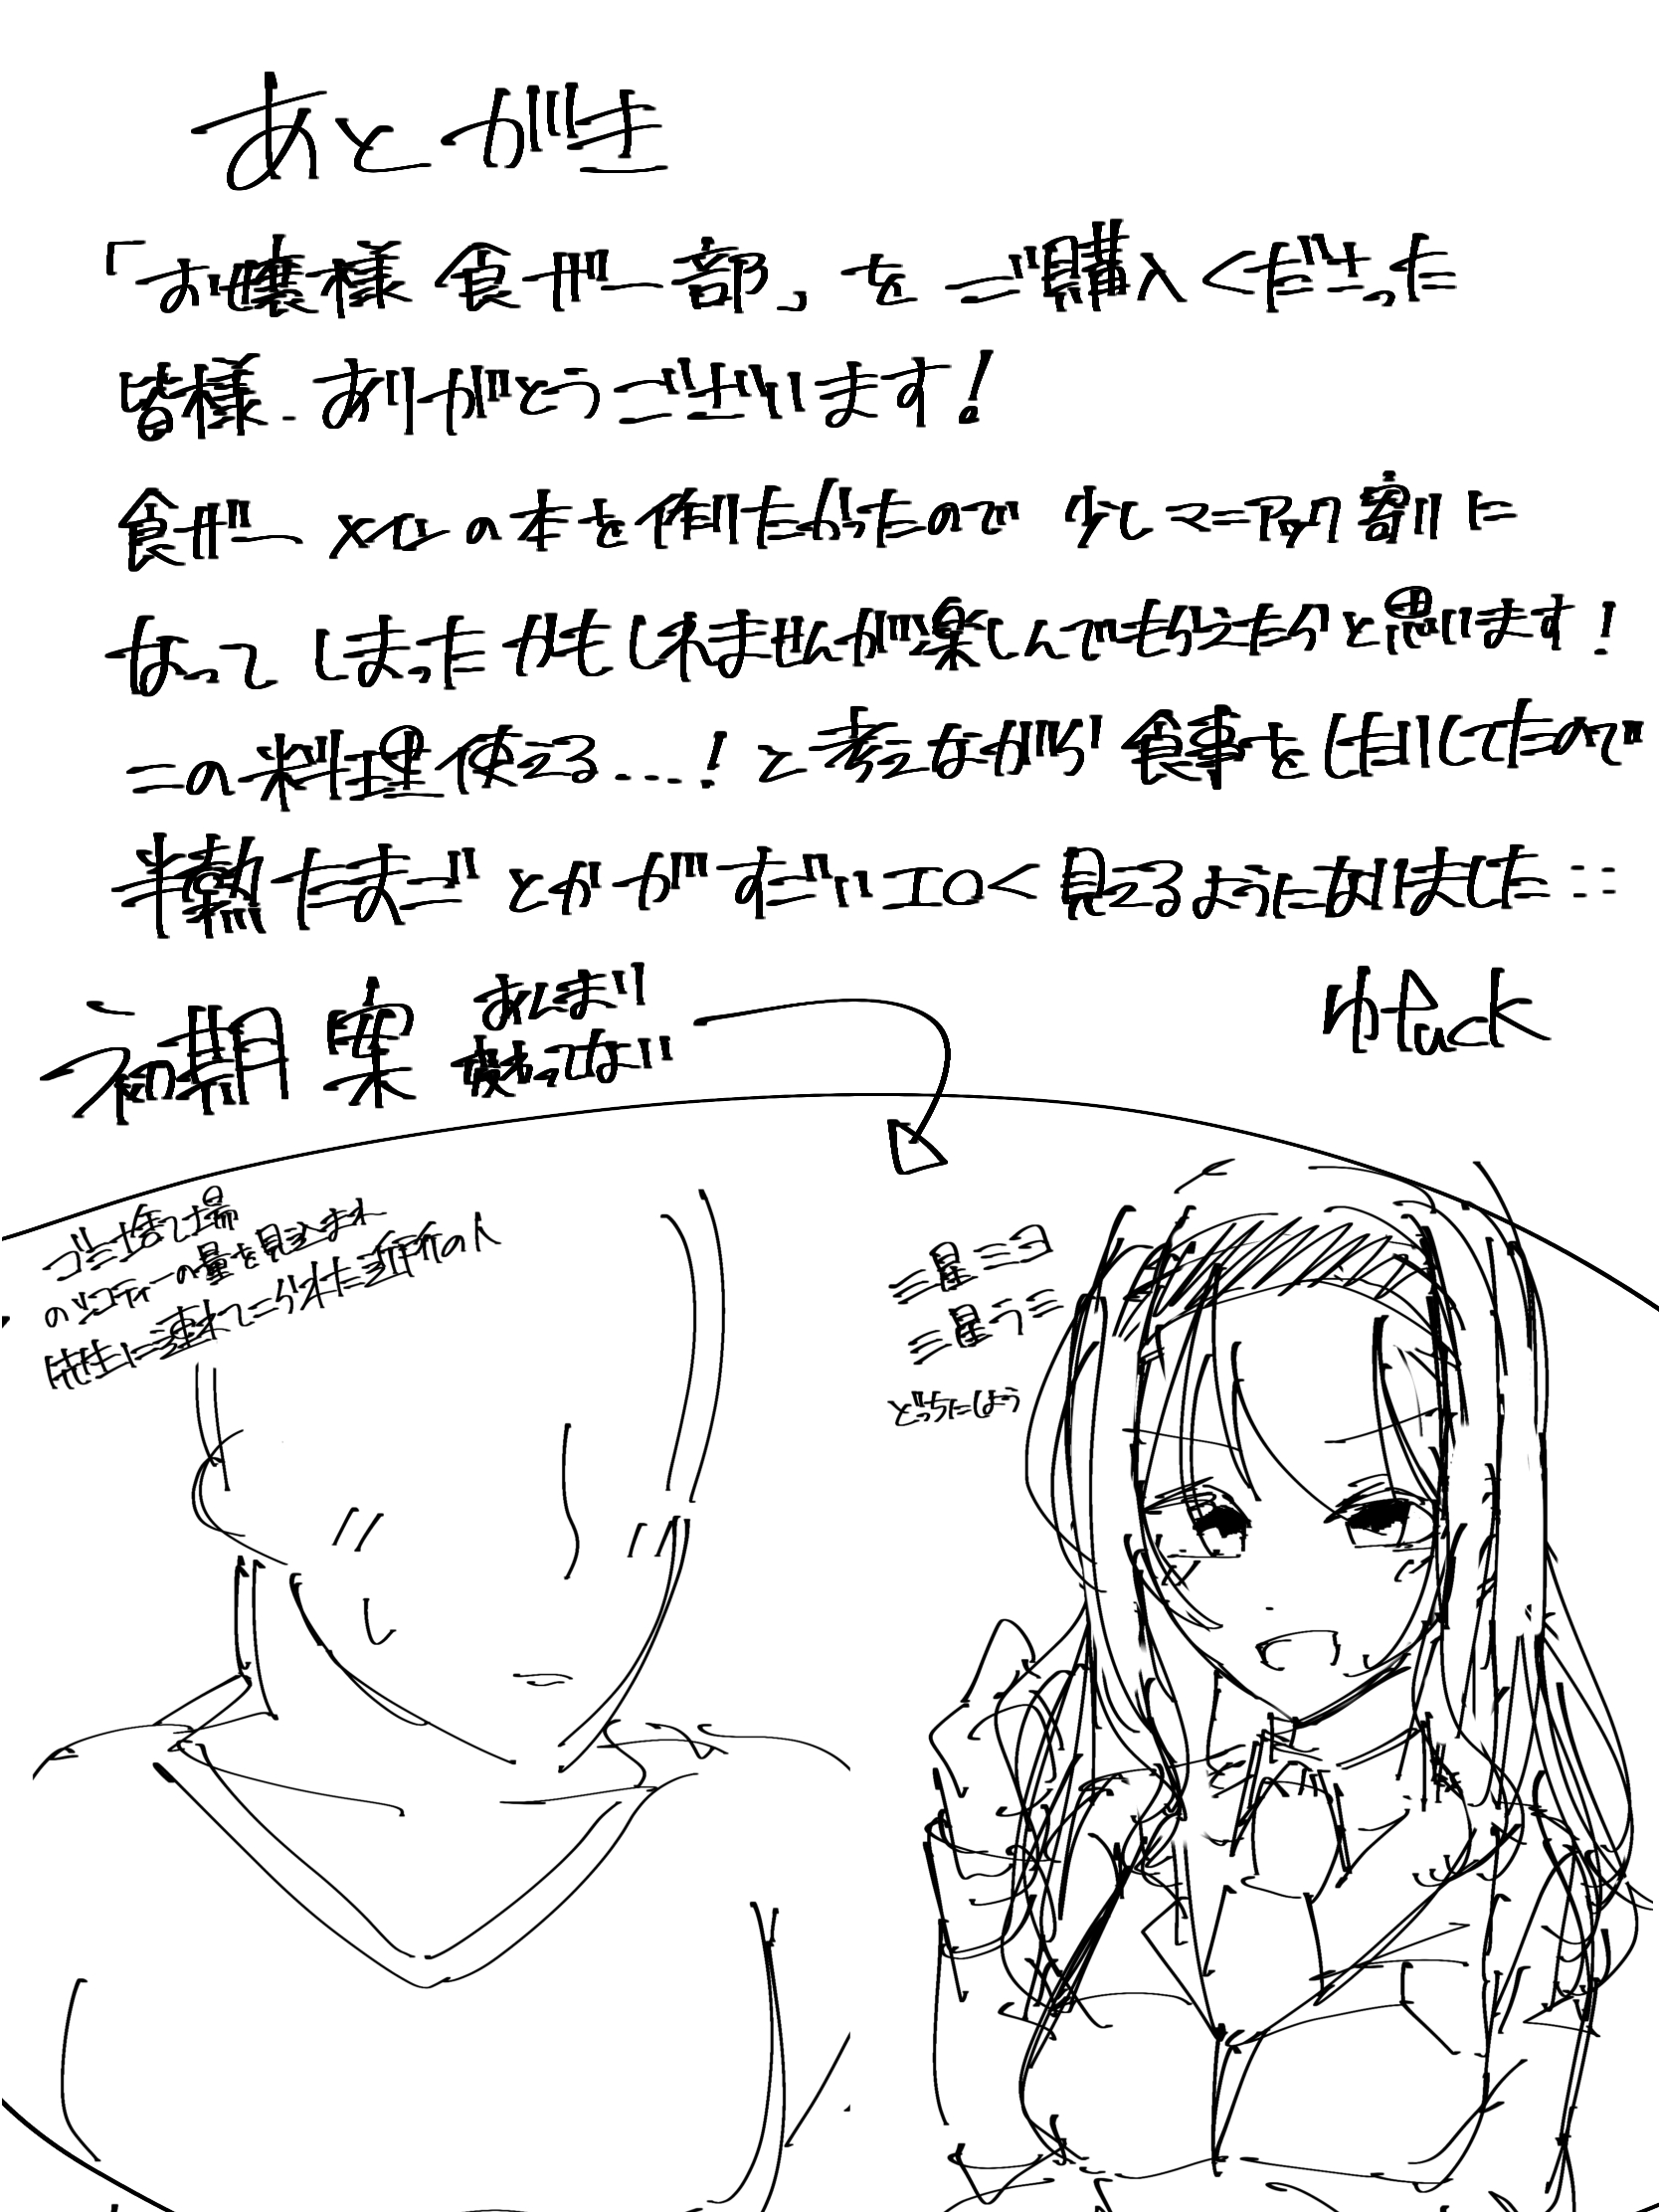 あとがき
「お嬢様食ザー部」をご購入くださった
皆様、ありがとうございます!
食ザーメインの本を作りたかったので少しマニアック寄りに
なってしまったかもしれませんが楽しんでもらえたらと思います!
この料理使える…!と考えながら食事をしたりしてたので
半熟たまごとかがすごいエロく見えるようになりました…
ゆPuck
初期案
あんまり
変わってない
ゴミ捨て場
のツユティーの量を見込まれ
先生に連れてこられた近所の人
三星ニコ
三星うミ
どっちにしよう